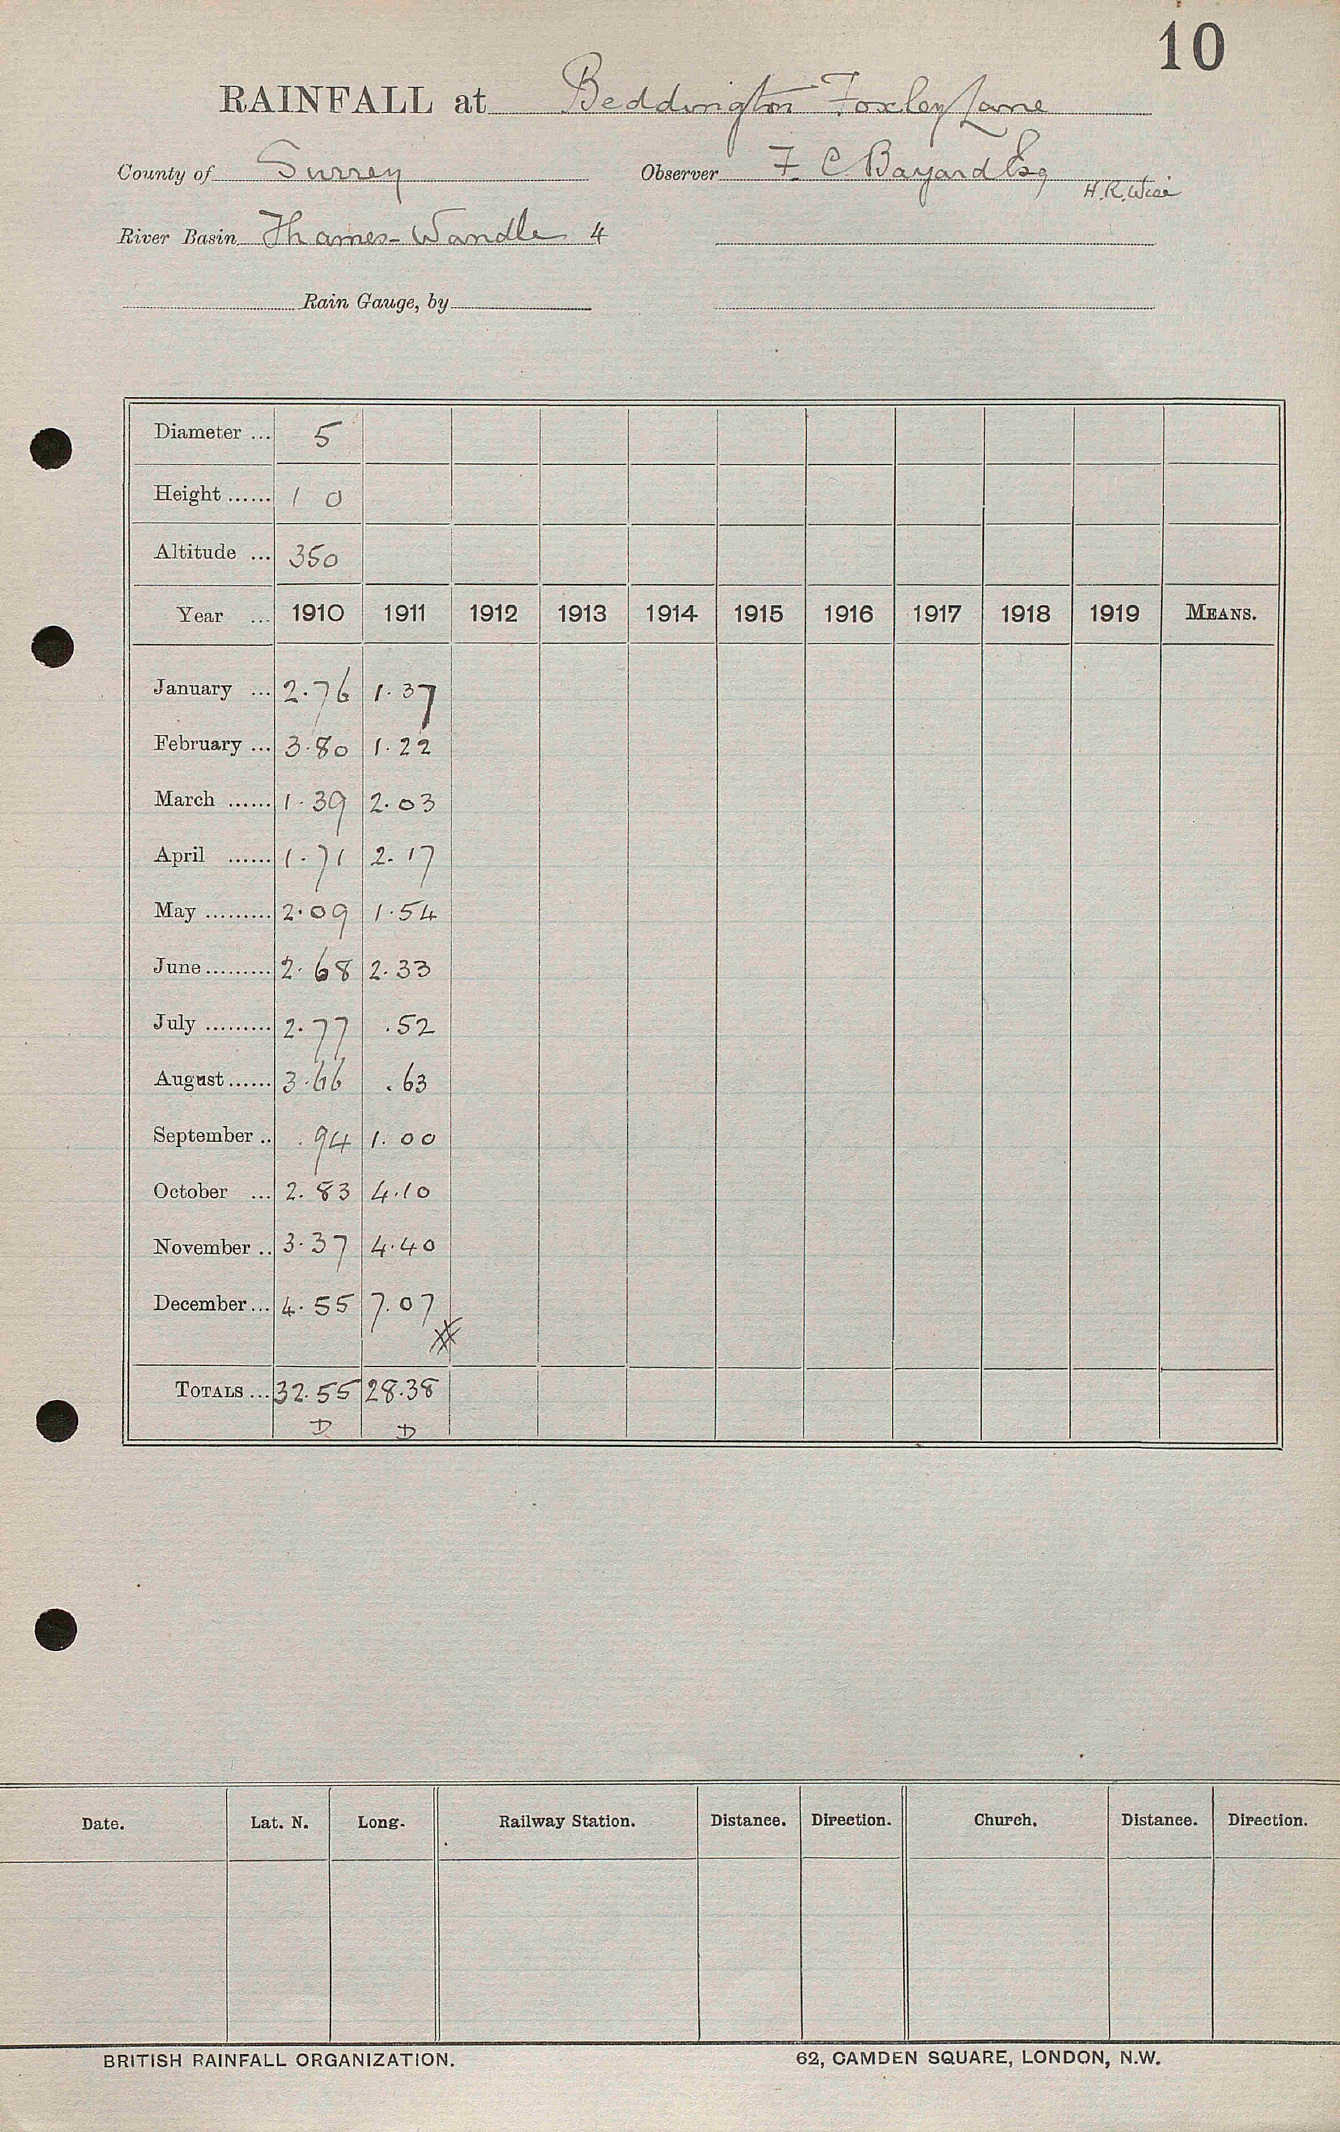 10
RAINFALL at Beddington Foxley Lane
County of Surrey Observer F. C Bayard Esq
H.R.
River Basin Thames-Wandle 4
Rain Gauge, by
Diameter ... 5
Height ...... 1 0
Altitude ... 350
Year ... 1910 1911 1912 1913 1914 1915 1916 1917 1918 1919 MEANS.
January ... 2.76 1.37
February ... 3.80 1.22
March ...... 1.39 2.03
April ...... 1.71 2.17
May ......... 2.09 1.54
June ......... 2.68 2.33
July ......... 2.77 .52
August ...... 3.66 .63
September .. .94 1.00
October ... 2.83 4.10
November .. 3.37 4.40
December ... 4.55 7.07
TOTALS ... 32.55 28.38
D D
Date. Lat. N. Long. Railway Station. Distance. Direction. Church. Distance. Direction.
BRITISH RAINFALL ORGANIZATION. 62, CAMDEN SQUARE, LONDON, N.W.